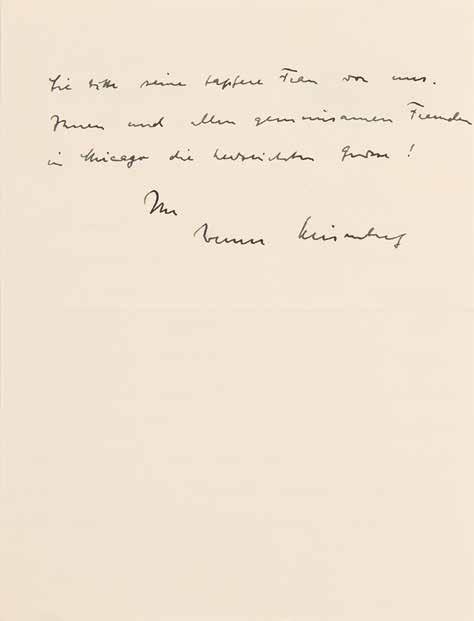 Sie bitte seine tapfere Frau von uns.
Ihnen und allen gemeinsamen Freunden
in Chicago die herzlichsten Grüsse!
Ihr
Werner Heisenberg